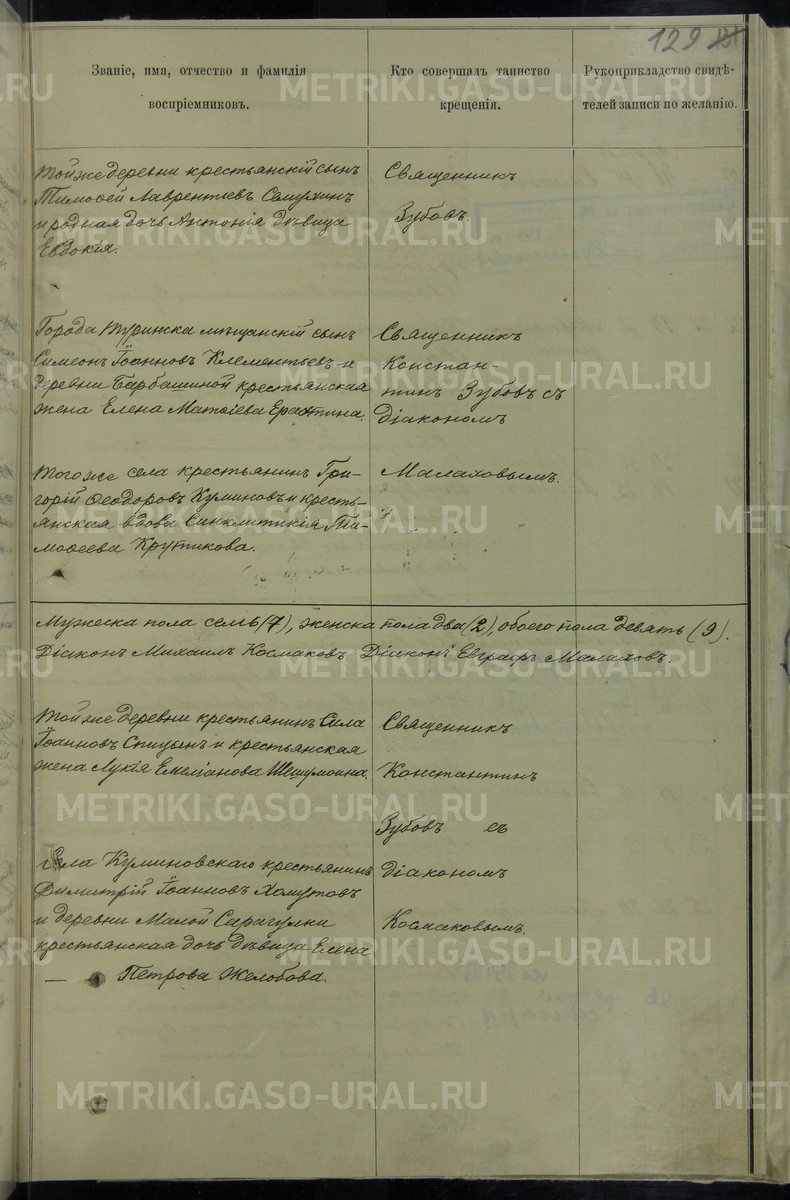 129
Званіе, имя, отчество и фамилія
воспріемниковъ.
Кто совершалъ таинство
крещенія.
Рукоприкладство свидѣ-
телей записи по желанію.
Той же деревни крестьянскій сынъ
Тимоѳей Лаврентьевъ
и родная дочь Антонія дѣвица
Евдокія.
Священникъ
Зубовъ.
Города Туринска мѣщанскій сынъ
Симеонъ Іоанновъ Клементьевъ и
деревни Барбашиной крестьянская
жена Елена Матѳіева
Священникъ
Констан-
тинъ Зубовъ съ
діакономъ
Того же села крестьянинъ Гри-
горій Ѳеодоровъ Куминовъ и кресть-
янская вдова Синклитикія Ти-
моѳеева Крутикова.
Малаховымъ.
Мужеска пола семь (7), женска пола два (2), обоего пола девять (9).
Діаконъ Михаилъ Космаковъ. Діаконъ Евграфъ Малаховъ.
Той же деревни крестьянинъ Сила
Іоанновъ Спицынъ и крестьянская
жена Лукія Емеліанова
Священникъ
Константинъ
Зубовъ съ
села Куминовскаго крестьянинъ
Димитрій Іоанновъ Хомутовъ
и деревни Малой Сарагулки
крестьянская дочь дѣвица Елена
Петрова Желобова.
діакономъ
Космаковымъ.
METRIKI.GASO-URAL.RU